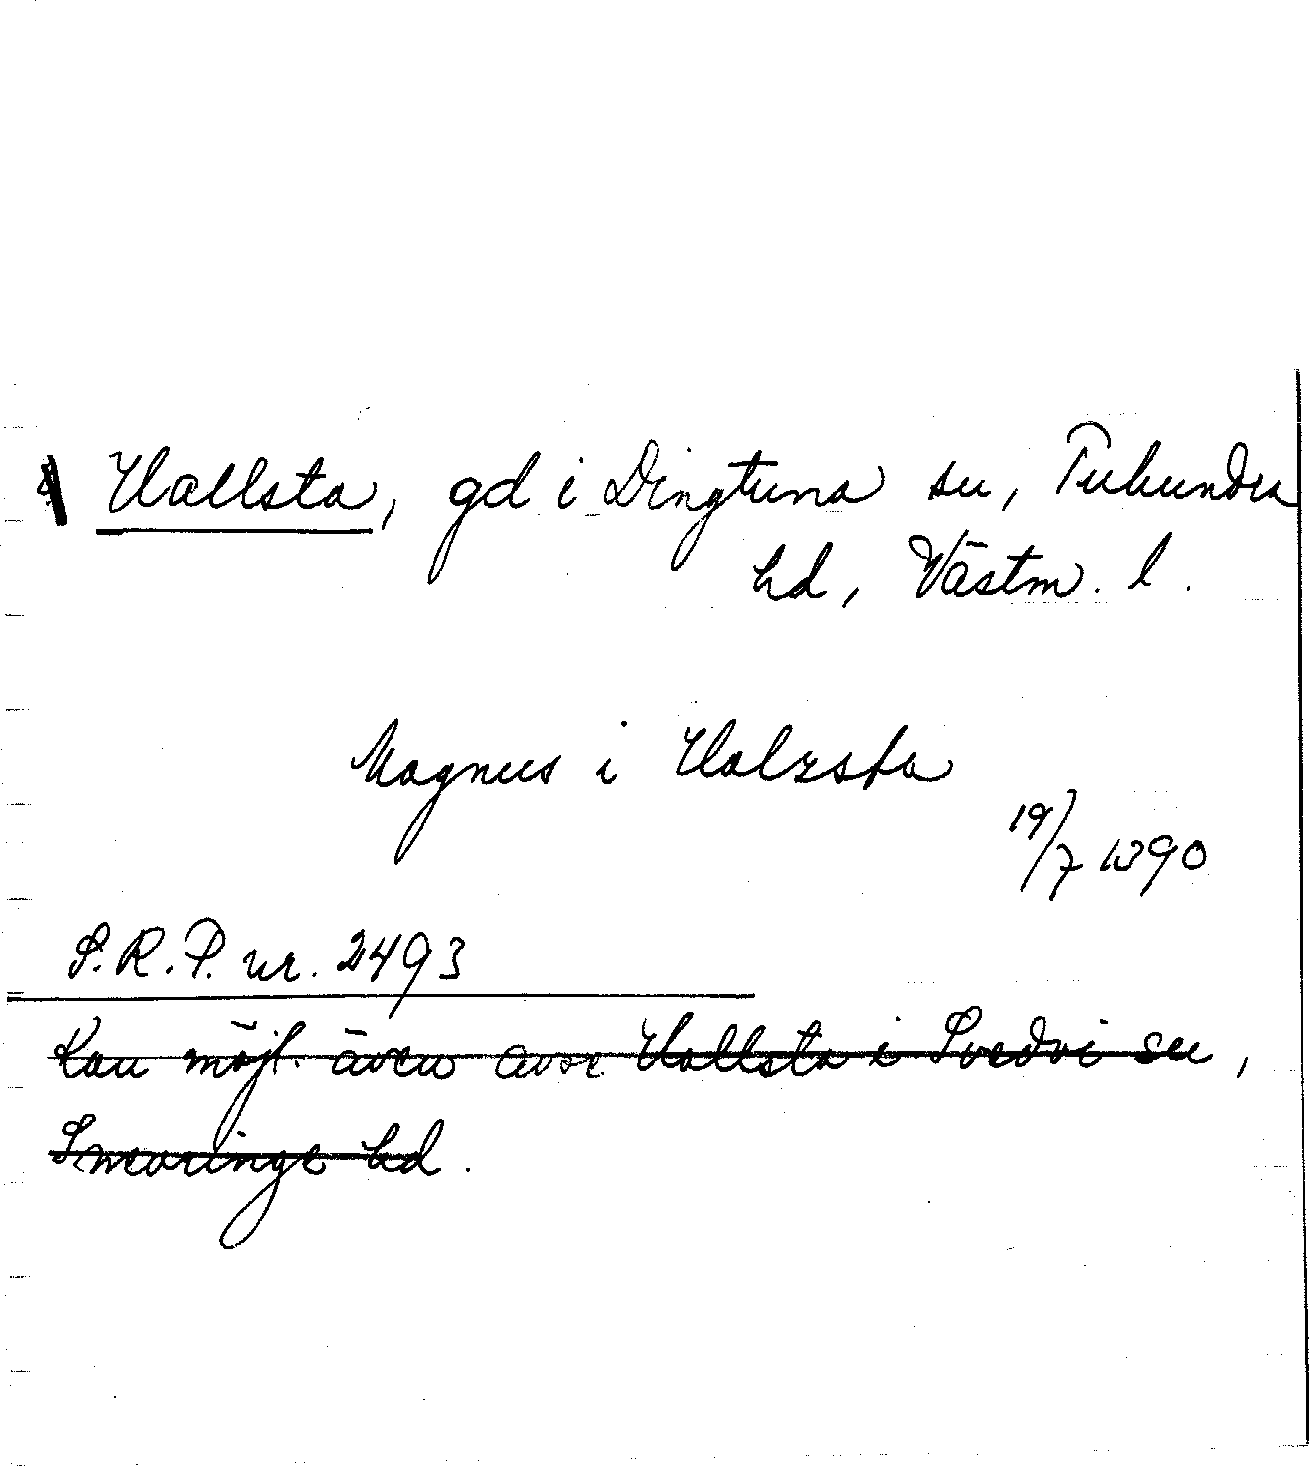 Hallsta, gd i Dingtuna sn, Tuhundra
hd, Västm. l.
Magnus i Halzsta
19/7 1390
S.R.P. nr. 2493
Kan möjl. även avse Hallsta i Svedvi sn,
Snevringe hd.